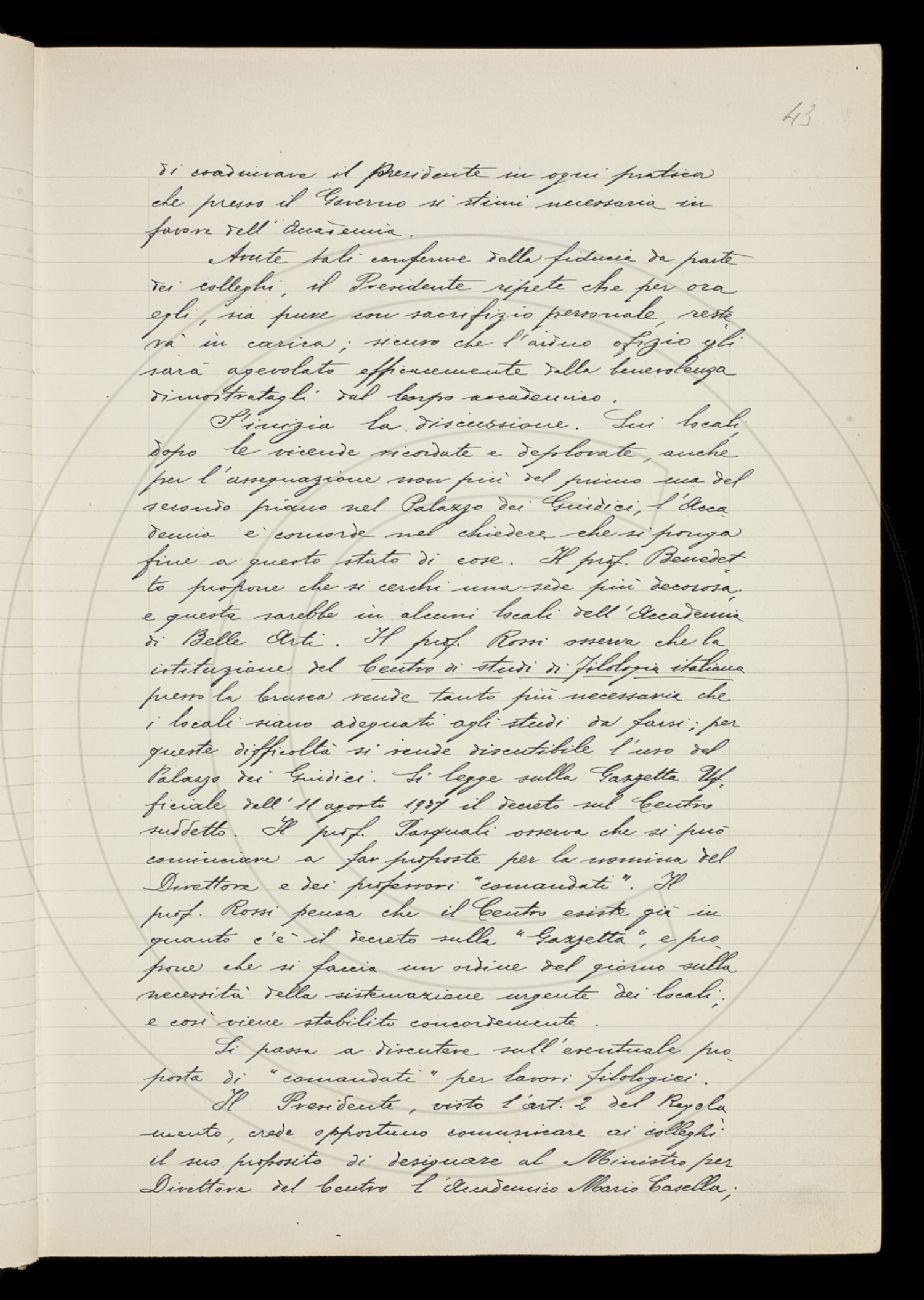 43
di coadiuvare il Presidente in ogni pratica
che presso il Governo si stimi necessaria in
favore dell'Accademia.
Avute tali conferme della fiducia da parte
dei colleghi, il Presidente ripete che per ora
egli, sia pure con sacrifizio personale, reste-
rà in carica; sicuro che l'arduo ofizio gli
sarà agevolato efficacemente dalla benevolenza
dimostratagli dal Corpo accademico.
S'inizia la discussione. Sui locali,
dopo le vicende ricordate e deplorate, anche
per l'assegnazione non più del primo ma del
secondo piano nel Palazzo dei Giudici, l'Acca-
demia è concorde nel chiedere che si ponga
fine a questo stato di cose. Il prof. Benedet-
to propone che si cerchi una sede più decorosa;
e questa sarebbe in alcuni locali dell'Accademia
di Belle Arti. Il prof. Rossi osserva che la
istituzione del Centro di studi di Filologia italiana
presso la Crusca rende tanto più necessaria che
i locali siano adeguati agli studi da farsi; per
queste difficoltà si rende discutibile l'uso del
Palazzo dei Giudici. Si legge sulla Gazzetta Uf-
ficiale dell'11 agosto 1937 il decreto sul Centro
suddetto. Il prof. Pasquali osserva che si può
cominciare a far proposte per la nomina del
Direttore e dei professori "comandati". Il
prof. Rossi pensa che il Centro esiste già in
quanto c'è il decreto sulla "Gazzetta", e pro-
pone che si faccia un ordine del giorno sulla
necessità della sistemazione urgente dei locali;
e così viene stabilito concordemente.
Si passa a discutere sull'eventuale pro-
posta di "comandati" per lavori filologici.
Il Presidente, visto l'art. 2 del Regola-
mento, crede opportuno comunicare ai colleghi
il suo proposito di designare al Ministro per
Direttore del Centro l'Accademico Mario Casella;